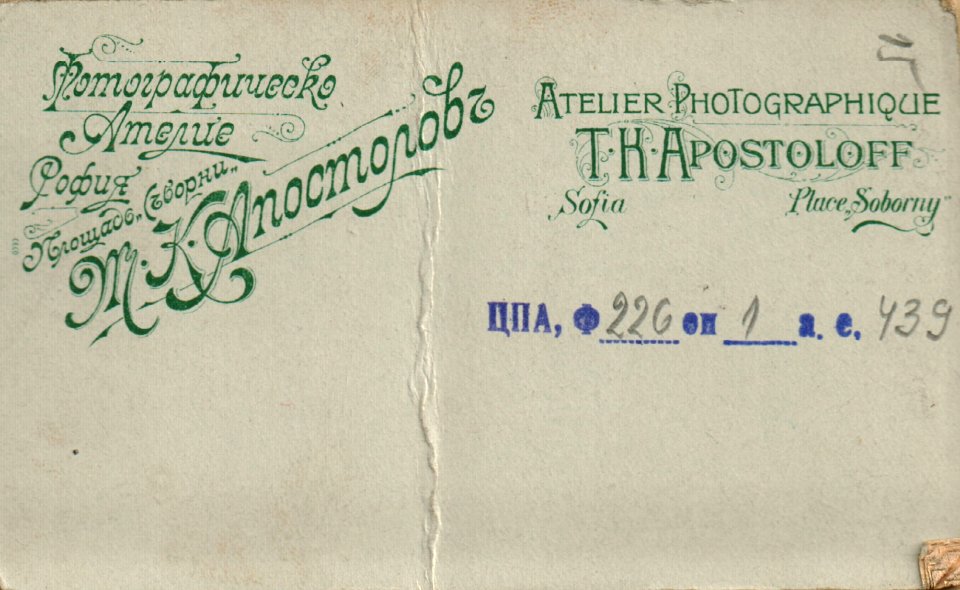 Фотографическо
Ателие
София
Площадъ „Съборни“
Т. К. Апостоловъ
ATELIER PHOTOGRAPHIQUE
T. K. APOSTOLOFF
Sofia Place „Soborny“
ЦПА, Ф 226 оп 1 а. е. 439